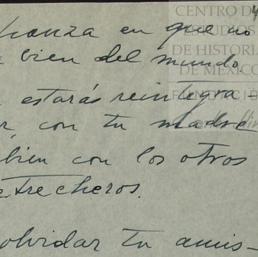 fianza en que no
a bien del mundo.
estarás reintegra-
r, con tu madre
bien con los otros
etrecheros.
olvidar tu amis-
CENTRO DE
DE HISTORI
DE MÉXICO